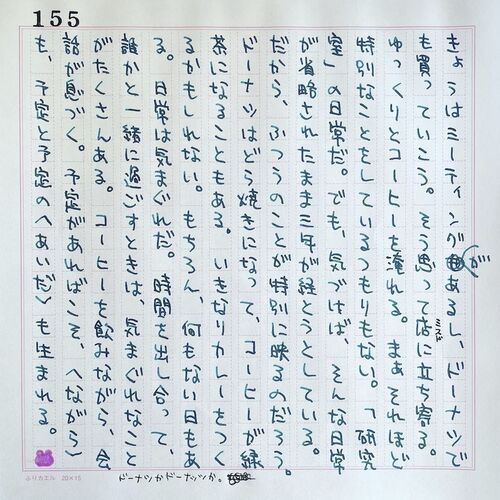 155
きょうはミーティングがあるし、ドーナツで
も買っていこう。そう思って店に立ち寄る。
ミスド
ゆっくりとコーヒーを淹れる。まあそれほど
特別なことをしているつもりもない。「研究
室」の日常だ。でも、気づけば、そんな日常
が省略されたまま三年が経とうとしている。
だから、ふつうのことが特別に映るのだろう。
ドーナツはどら焼きになって、コーヒーが緑
茶になることもある。いきなりカレーをつく
るかもしれない。もちろん、何もない日もあ
る。日常は気まぐれだ。時間を出し合って、
誰かと一緒に過ごすときは、気まぐれなこと
がたくさんある。コーヒーを飲みながら、会
話が息づく。予定があればこそ、〈ながら〉
も、予定と予定の〈あいだ〉も生まれる。
ドーナツかドーナッツか。
ふりカエル 20×15